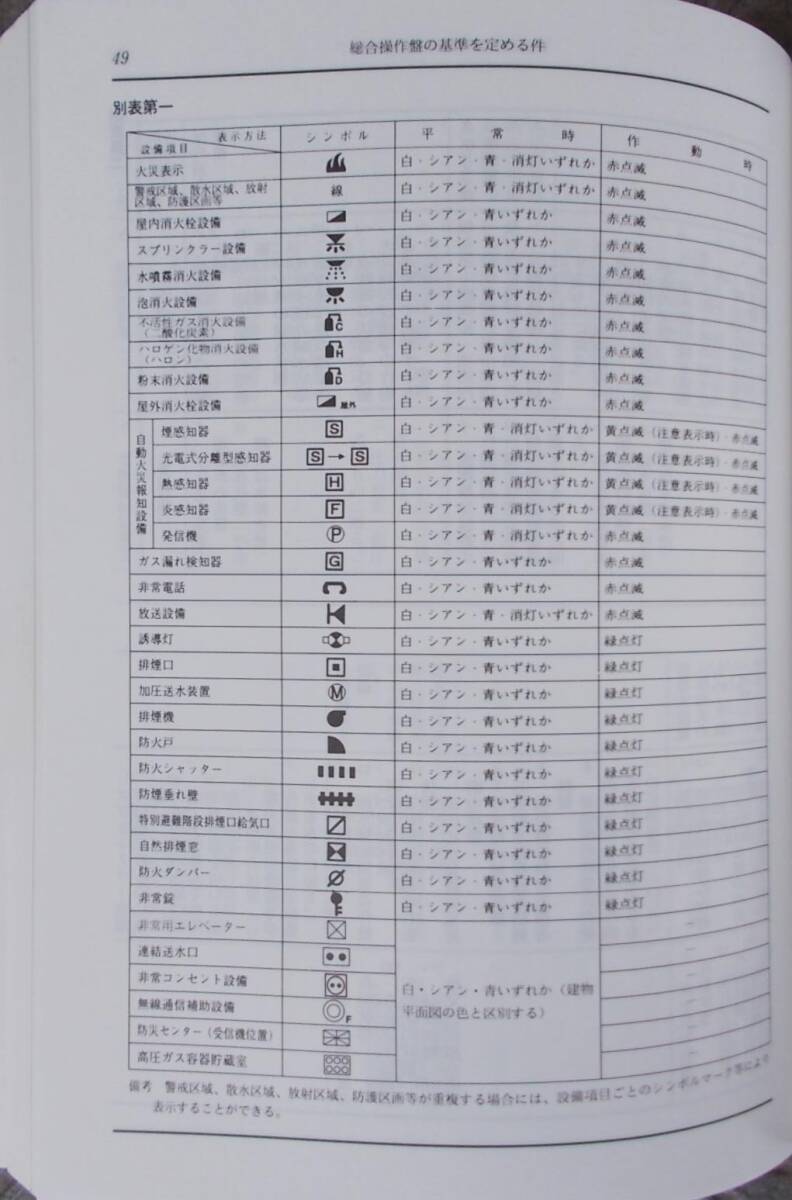 49
総合操作盤の基準を定める件
別表第一
表示方法 シンボル 平常時 作動時
設備項目
火災表示 白・シアン・青・消灯いずれか 赤点滅
警戒区域、散水区域、放射 線 白・シアン・青・消灯いずれか 赤点滅
区域、防護区画等
屋内消火栓設備 白・シアン・青いずれか 赤点滅
スプリンクラー設備 白・シアン・青いずれか 赤点滅
水噴霧消火設備 白・シアン・青いずれか 赤点滅
泡消火設備 白・シアン・青いずれか 赤点滅
不活性ガス消火設備 C 白・シアン・青いずれか 赤点滅
（二酸化炭素）
ハロゲン化物消火設備 H 白・シアン・青いずれか 赤点滅
（ハロン）
粉末消火設備 D 白・シアン・青いずれか 赤点滅
屋外消火栓設備 屋外 白・シアン・青いずれか 赤点滅
自動火災報知設備
煙感知器 S 白・シアン・青・消灯いずれか 黄点滅（注意表示時）・赤点滅
光電式分離型感知器 S→S 白・シアン・青・消灯いずれか 黄点滅（注意表示時）・赤点滅
熱感知器 H 白・シアン・青・消灯いずれか 黄点滅（注意表示時）・赤点滅
炎感知器 F 白・シアン・青・消灯いずれか 黄点滅（注意表示時）・赤点滅
発信機 P 白・シアン・青・消灯いずれか 赤点滅
ガス漏れ検知器 G 白・シアン・青いずれか 赤点滅
非常電話 白・シアン・青いずれか 赤点滅
放送設備 白・シアン・青・消灯いずれか 赤点滅
誘導灯 白・シアン・青いずれか 緑点灯
排煙口 白・シアン・青いずれか 緑点灯
加圧送水装置 M 白・シアン・青いずれか 緑点灯
排煙機 白・シアン・青いずれか 緑点灯
防火戸 白・シアン・青いずれか 緑点灯
防火シャッター 白・シアン・青いずれか 緑点灯
防煙垂れ壁 白・シアン・青いずれか 緑点灯
特別避難階段排煙口給気口 白・シアン・青いずれか 緑点灯
自然排煙窓 白・シアン・青いずれか 緑点灯
防火ダンパー 白・シアン・青いずれか 緑点灯
非常錠 白・シアン・青いずれか 緑点灯
非常用エレベーター －
連結送水口 －
非常コンセント設備 白・シアン・青いずれか（建物 －
無線通信補助設備 F 平面図の色と区別する） －
防災センター（受信機位置） －
高圧ガス容器貯蔵室 －
備考 警戒区域、散水区域、放射区域、防護区画等が重複する場合には、設備項目ごとのシンボルマーク等により
表示することができる。